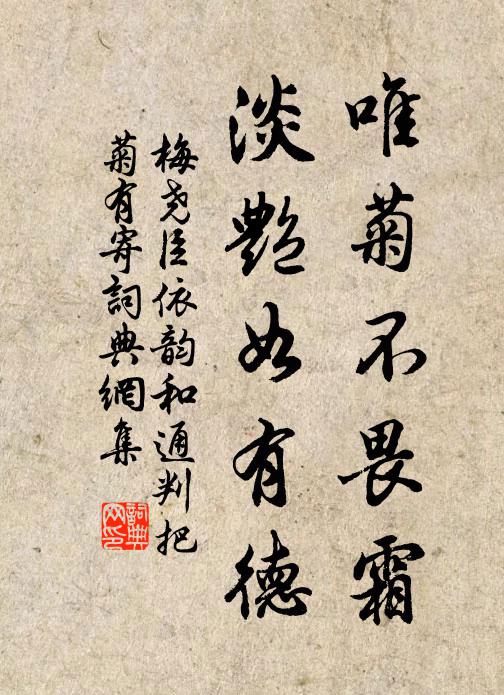 唯菊不畏霜
淡艷如有德
梅尧臣依韵和通判把
菊有寄詞典網集
詞典
网印